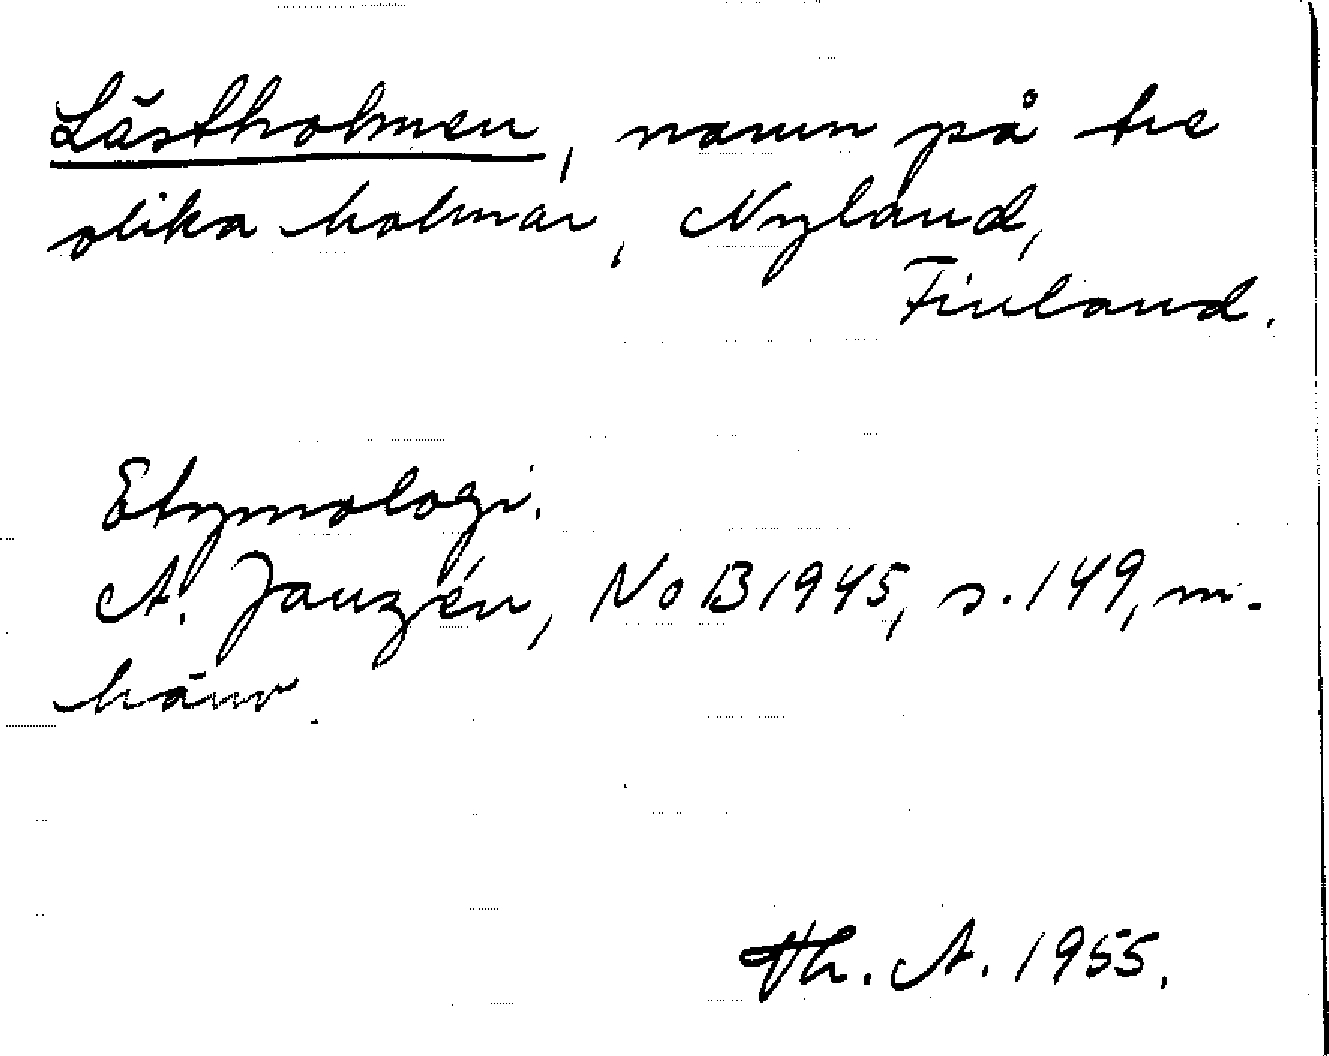 Lästholmen, namn på tre
olika holmar, Nyland,
Finland.
Etymologi.
A. Janzén, NoB 1945, s. 149, m.
hänv.
Th. A. 1955.